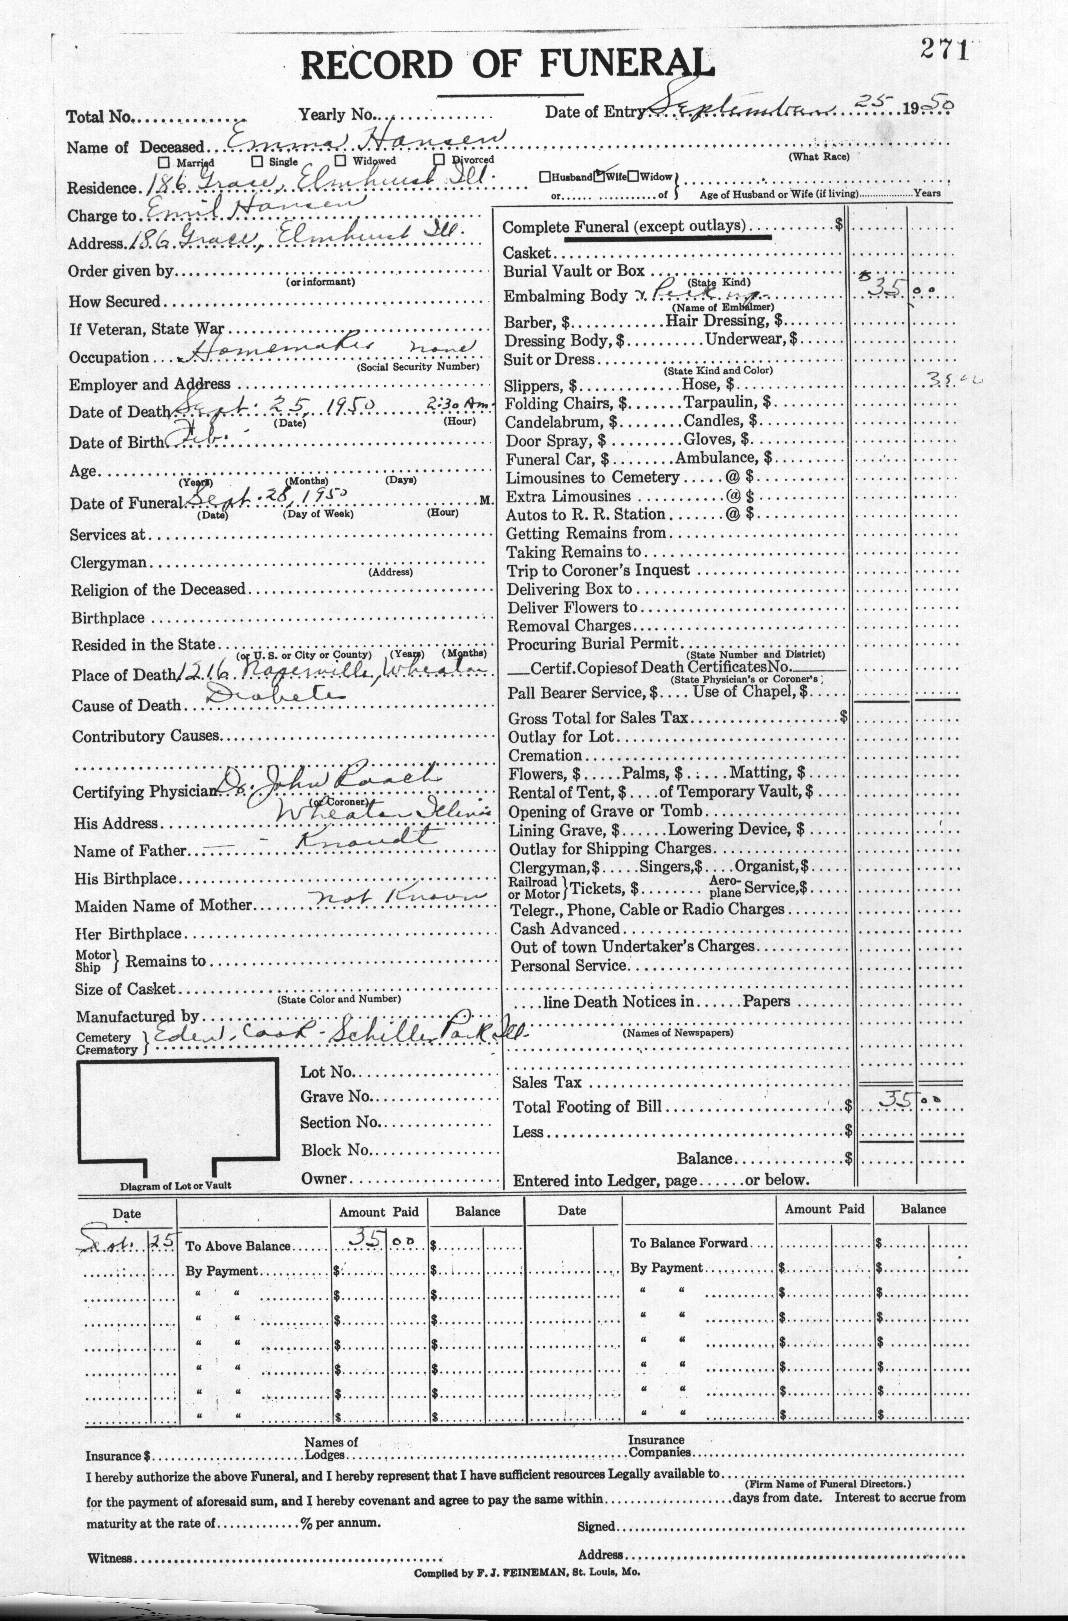 271
RECORD OF FUNERAL
Total No. Yearly No. Date of Entry September 25 1950
Name of Deceased Emma Hansen
(What Race)
Married Single Widowed Divorced
Residence 186 Grace, Elmhurst Ill.
Husband Wife Widow
or of Age of Husband or Wife (if living) Years
Charge to Emil Hansen
Address 186 Grace, Elmhurst Ill.
Order given by
(or informant)
How Secured
If Veteran, State War
Occupation Homemaker none
(Social Security Number)
Employer and Address
Date of Death Sept. 25, 1950 2:30 Am
(Date) (Hour)
Date of Birth Feb.
Age
(Years) (Months) (Days)
Date of Funeral Sept. 28, 1950 M.
(Date) (Day of Week) (Hour)
Services at
Clergyman
(Address)
Religion of the Deceased
Birthplace
Resided in the State
(or U. S. or City or County) (Years) (Months)
Place of Death 1216 Naperville, Wheaton
Cause of Death Diabetes
Contributory Causes
Certifying Physician Dr. John Roach
(or Coroner)
His Address Wheaton Illinois
Name of Father Knoudt
His Birthplace
Maiden Name of Mother not Known
Her Birthplace
Motor
Ship } Remains to
Size of Casket
(State Color and Number)
Manufactured by
Cemetery
Crematory } Eden. Cook - Schiller Park Ill.
Lot No.
Grave No.
Section No.
Block No.
Owner
Diagram of Lot or Vault
Complete Funeral (except outlays) $
Casket
Burial Vault or Box
(State Kind)
Embalming Body & Pick up $35 00
(Name of Embalmer)
Barber, $ Hair Dressing, $
Dressing Body, $ Underwear, $
Suit or Dress
(State Kind and Color)
Slippers, $ Hose, $ 35.00
Folding Chairs, $ Tarpaulin, $
Candelabrum, $ Candles, $
Door Spray, $ Gloves, $
Funeral Car, $ Ambulance, $
Limousines to Cemetery @ $
Extra Limousines @ $
Autos to R. R. Station @ $
Getting Remains from
Taking Remains to
Trip to Coroner's Inquest
Delivering Box to
Deliver Flowers to
Removal Charges
Procuring Burial Permit
(State Number and District)
Certif. Copies of Death Certificates No.
(State Physician's or Coroner's)
Pall Bearer Service, $ Use of Chapel, $
Gross Total for Sales Tax $
Outlay for Lot
Cremation
Flowers, $ Palms, $ Matting, $
Rental of Tent, $ of Temporary Vault, $
Opening of Grave or Tomb
Lining Grave, $ Lowering Device, $
Outlay for Shipping Charges
Clergyman, $ Singers, $ Organist, $
Railroad
or Motor } Tickets, $ Aero-
plane Service, $
Telegr., Phone, Cable or Radio Charges
Cash Advanced
Out of town Undertaker's Charges
Personal Service
line Death Notices in Papers
(Names of Newspapers)
Sales Tax
Total Footing of Bill $ 35 00
Less $
Balance $
Entered into Ledger, page or below.
Date Amount Paid Balance Date Amount Paid Balance
Sept. 25 To Above Balance 35 00 $ To Balance Forward $
By Payment $ $ By Payment $ $
" " $ $ " " $ $
" " $ $ " " $ $
" " $ $ " " $ $
" " $ $ " " $ $
" " $ $ " " $ $
" " $ $ " " $ $
Insurance $ Names of
Lodges Insurance
Companies
I hereby authorize the above Funeral, and I hereby represent that I have sufficient resources Legally available to
(Firm Name of Funeral Directors.)
for the payment of aforesaid sum, and I hereby covenant and agree to pay the same within days from date. Interest to accrue from
maturity at the rate of % per annum.
Signed
Witness Address
Compiled by F. J. FEINEMAN, St. Louis, Mo.